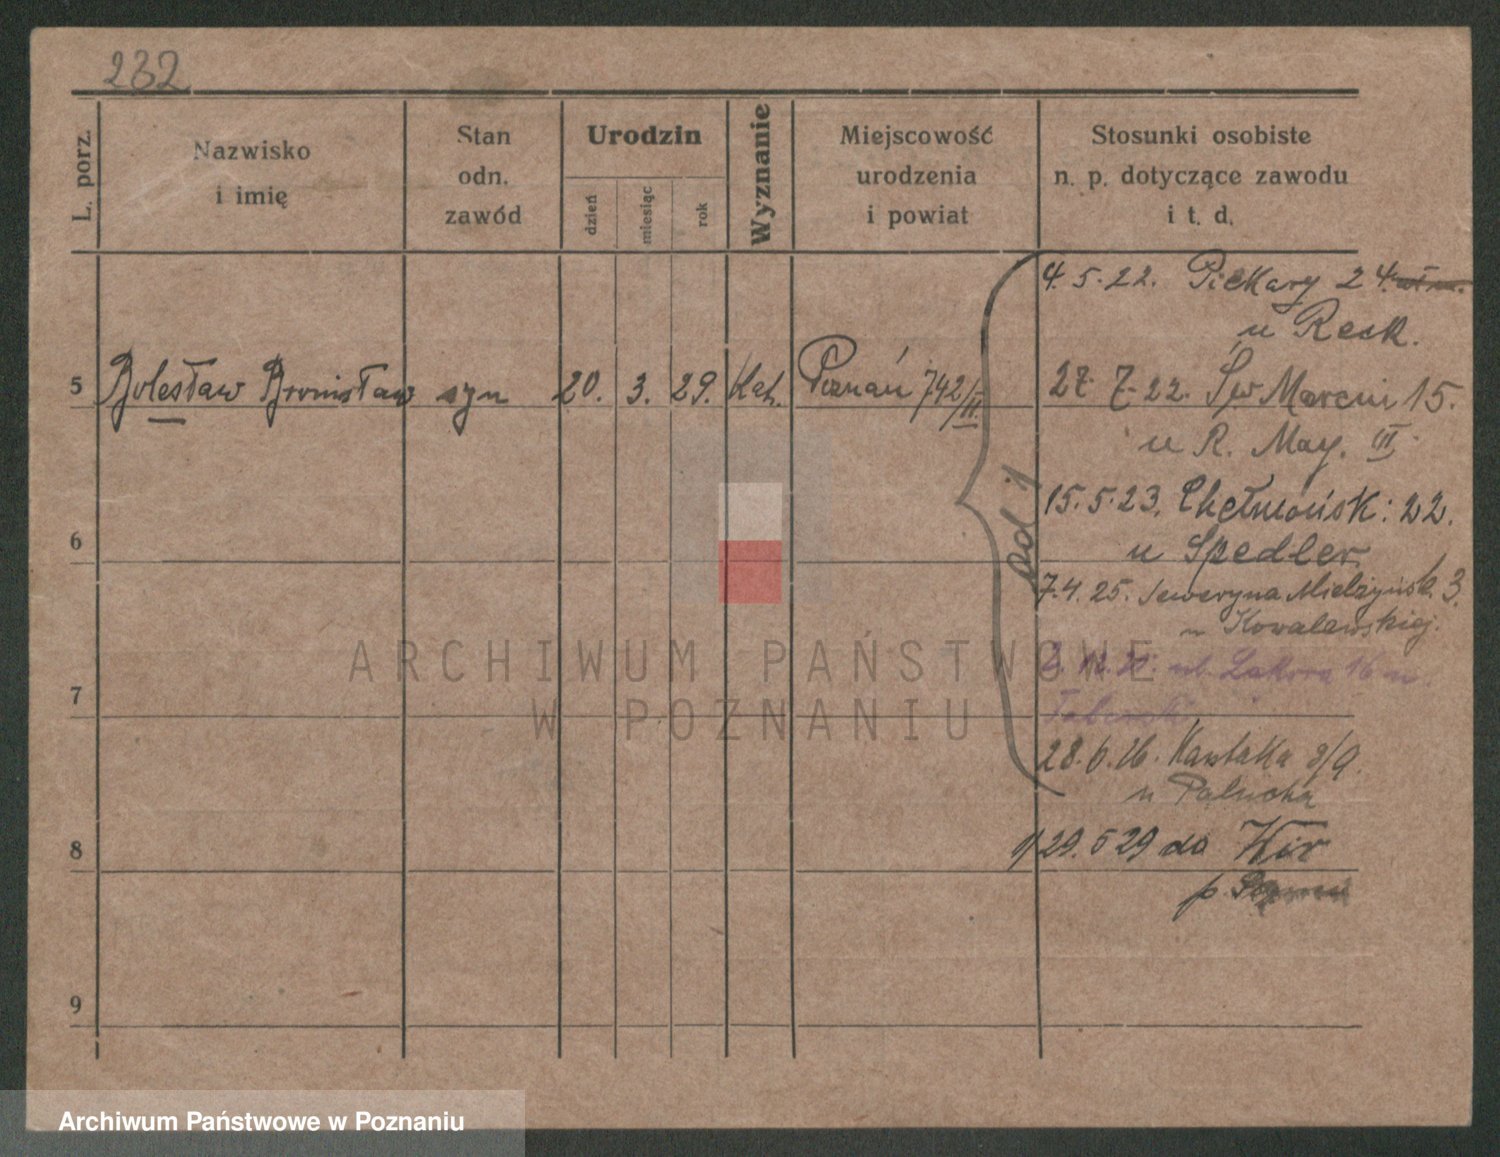 232
L. porz.
Nazwisko
i imię
Stan
odn.
zawód
Urodzin
dzień
miesiąc
rok
Wyznanie
Miejscowość
urodzenia
i powiat
Stosunki osobiste
n. p. dotyczące zawodu
i t. d.
4.5.22. Piekary 24
u Reck.
5 Bolesław Bronisław syn 20. 3. 29. Kat. Poznań 742/II.
27.7.22. Św Marcin 15.
u R. May. III.
ad 1
15.5.23. Chełmońsk: 22.
6
u Spedler
7.4.25. Seweryna Mielżyńsk. 3.
u Kowalewskiej.
ul. 16 m.
7
28.6.26. 8/9.
u Palucha
8
1/ 29.5 29 do Kór
p.
9
ARCHIWUM PAŃSTWOWE
W POZNANIU
Archiwum Państwowe w Poznaniu